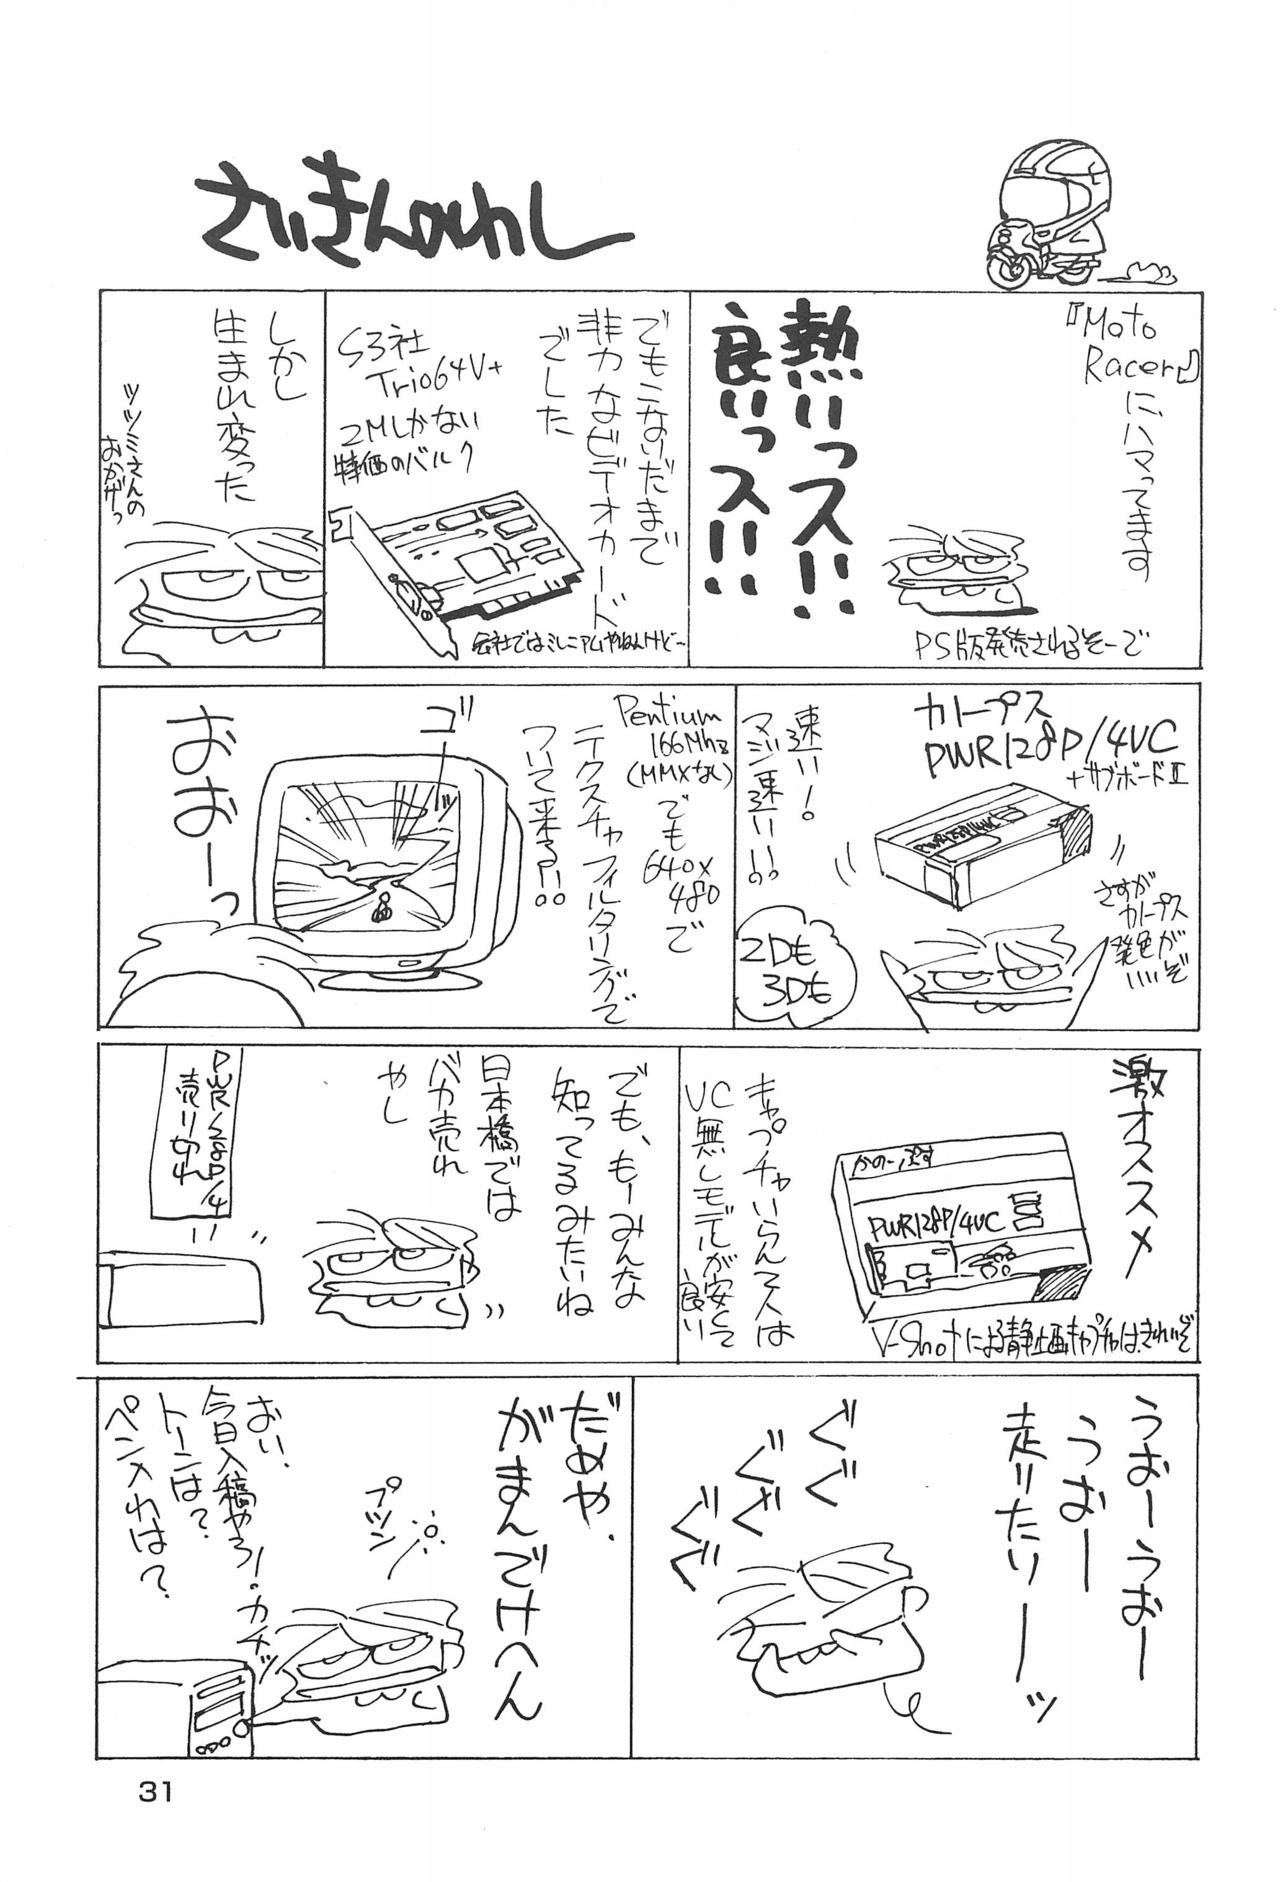 さいきんのわし
『Moto
Racer』
にハマってます
熱いっス!!
良いっス!!
PS版発売されるそーで
でもこないだまで
非力なビデオカード
でした
S3社
Trio64V+
2Mしかない
特価のバルク
会社ではミレニアムやねんけど〜
しかし
生まれ変った
ツツミさんの
おかげっ
カノープス
PWR128P/4VC
+サブボードⅡ
PWR128P/4VC
速い!
マジ速い!!。
さすが
カノープス
発色が
いいぞ
2Dも
3Dも
Pentium
166Mhz
(MMXなし)
でも
640×
480で
テクスチャフィルタリングで
ついて来る!!。
ゴ
おおーっ
激オススメ
かのーぷす
PWR128P/4VC
V-Shotによる静止画キャプチャは、きれいぞ
キャプチャいらん人は
VC無しモデルが安くて
良い
でも、もーみんな
知ってるみたいね
日本橋では
バカ売れ
やし
PWR128P/4
売り切れ
うおーうおー
うおー
走りたりーーッ
ぐぐ
ぐぐ
ぐぐ
だめや、
がまんでけへん
プツン
おい、
今日入稿やろ!
トーンは?
ペン入れは?
カチッ
31